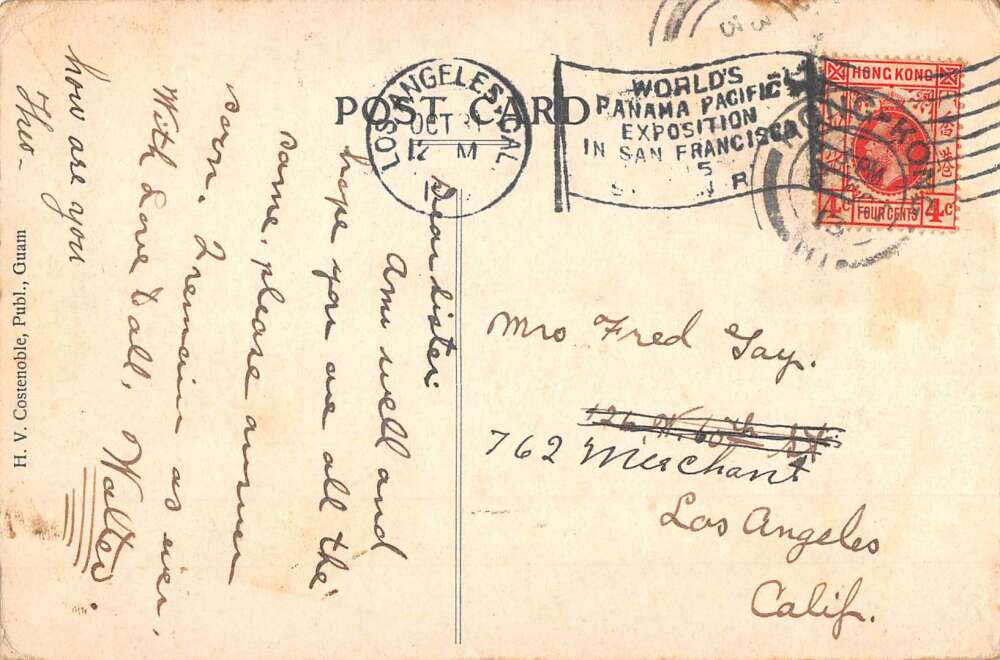 POST CARD
LOS ANGELES, CAL
OCT 31
12 M
WORLD'S
PANAMA PACIFIC
EXPOSITION
IN SAN FRANCISCO
HONG KONG
香港
4c FOUR CENTS 4c
Dear Sister.
Am well and
hope you are all the
same, please answer
soon. I remain as ever,
With Love to all, Walter.
Theo-
how are you
Mrs Fred Gay.
126 W. 60th St
762 Merchant
Los Angeles
Calif.
H. V. Costenoble, Publ., Guam